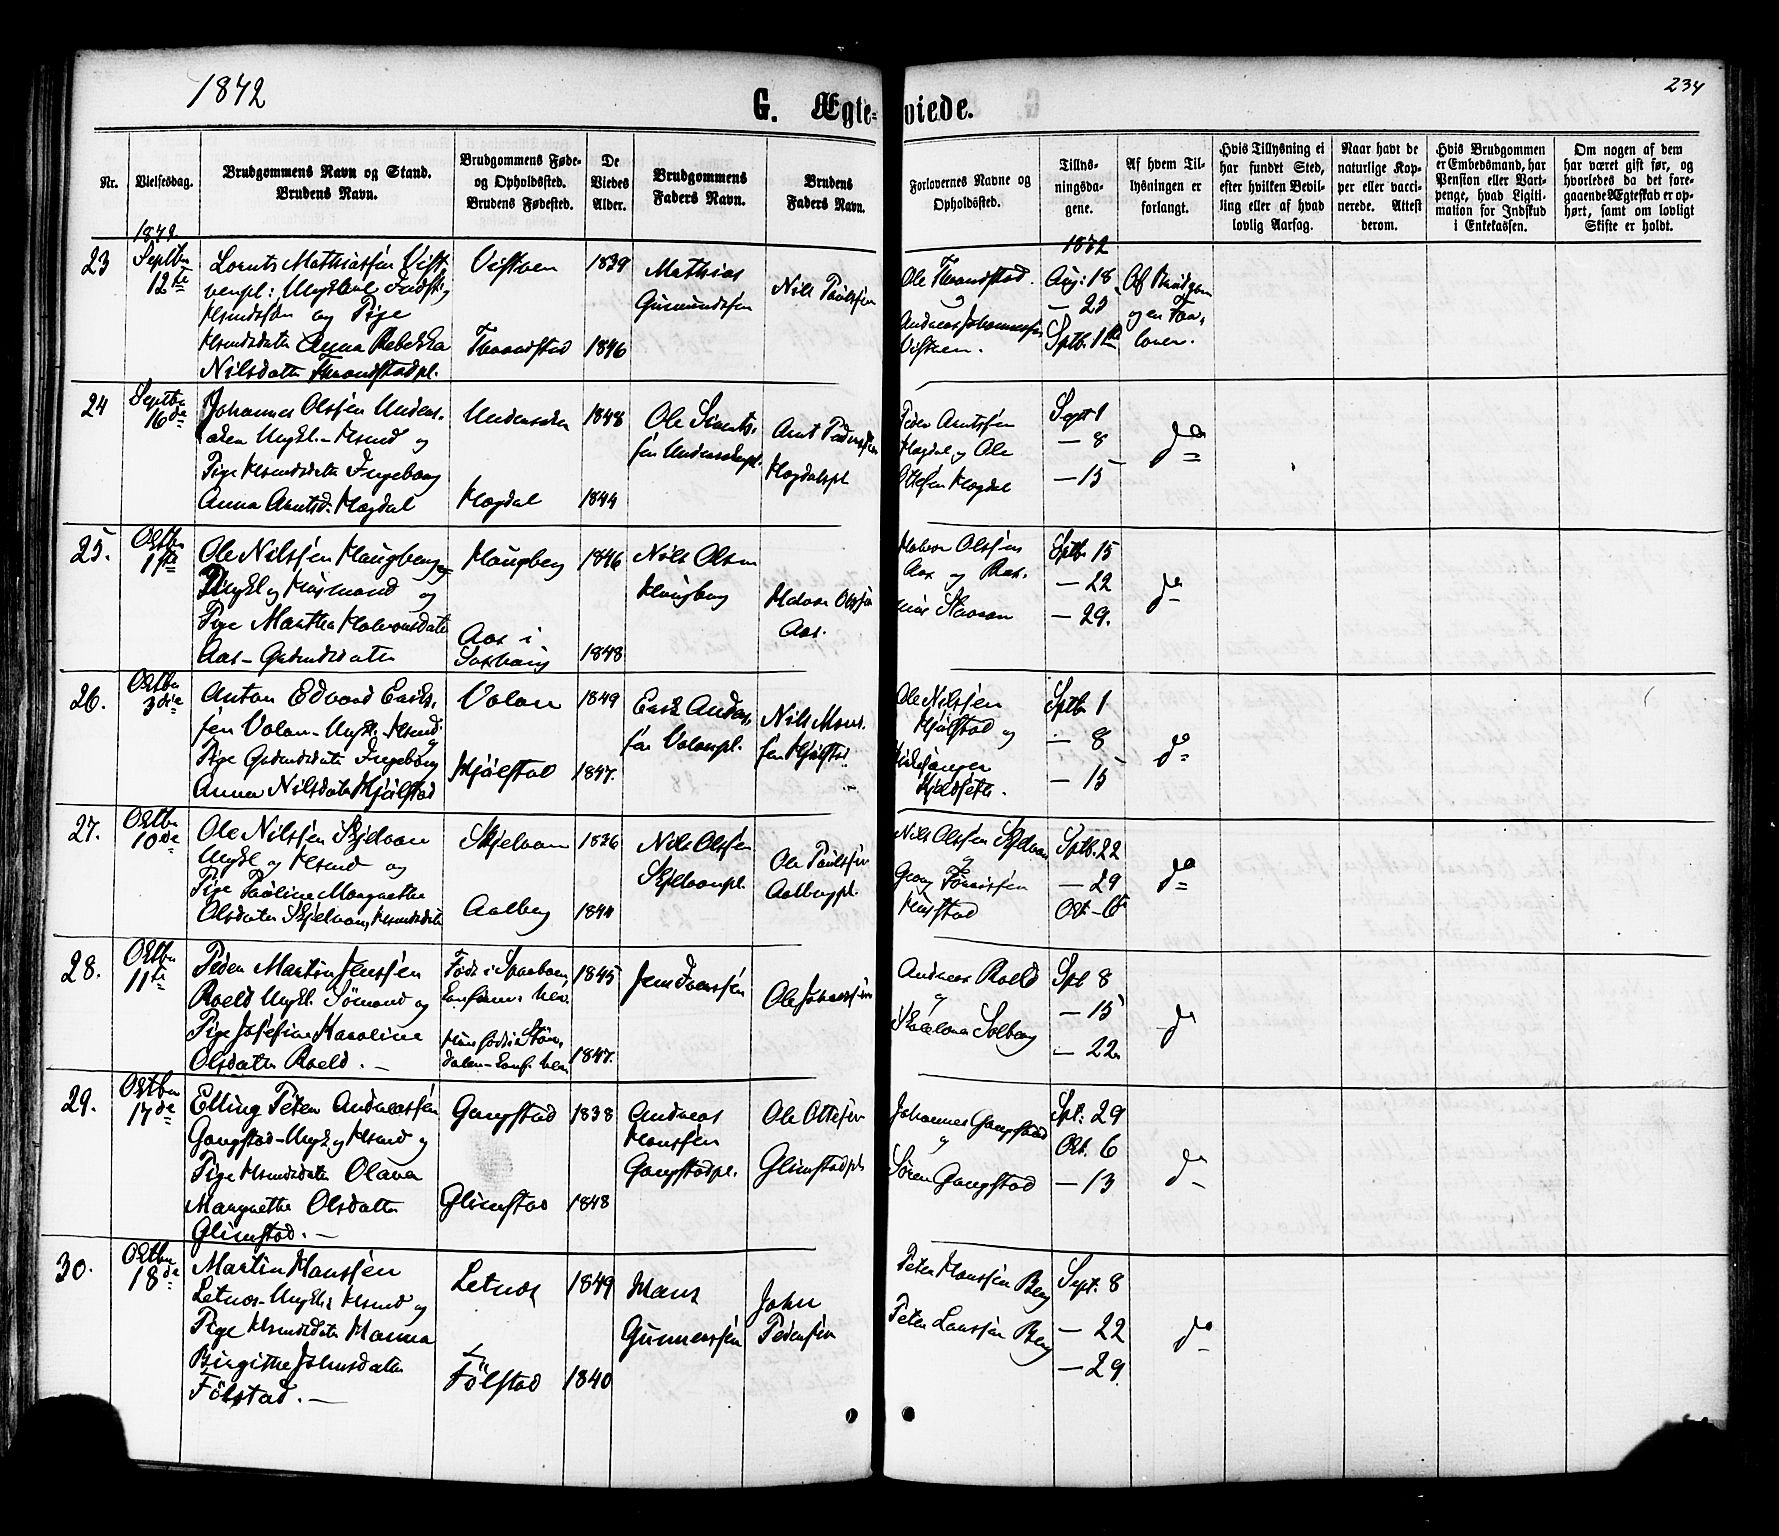 1872
G. Ægte-
viede.
234
Nr.
Vielsesdag.
Brudgommens Navn og Stand.
Brudens Navn.
Brudgommens Føde-
og Opholdssted.
Brudens Fødested.
De
Viedes
Alder.
Brudgommens
Faders Navn.
Brudens
Faders Navn.
Forlovernes Navne og
Opholdssted.
Tillys-
ningsda-
gene.
Af hvem Til-
lysningen er
forlangt.
Hvis Tillysning ei
har fundet Sted,
efter hvilken Bevil-
ling eller af hvad
lovlig Aarsag.
Naar havt de
naturlige Kop-
per eller vacci-
nerede. Attest
derom.
Hvis Brudgommen
er Embedsmand, har
Pension eller Vart-
penge, hvad Ligiti-
mation for Indskud
i Enkekassen.
Om nogen af dem
har været gift før, og
hvorledes da det fore-
gaaende Ægteskab er op-
hørt, samt om lovligt
Skifte er holdt.
1872
23
Septbr
12te
Lornts Mathiassen Vist
og Pige
Anna Rebekka
Nilsdatter Thrandstadpl.
Vistven
1839
Thrandstad
1846
Mathias
Gunnundsen
Nils Paulsen
Ole Thrandstad
og
Andreas Johannessen
Vistven.
1872
Aug: 18
— 25
Septb. 1
Af Brudgom
og en For-
lover.
24
Septbr
16de
Johannes Olssen Undens-
aken Ungkl. - Hsmd og
Pige Hsmdsdatter Ingeborg
Anna Arntsd. Hogdal
Undensaken
1848
Hogdal
1844
Ole Sivents-
sen
Arnt Pedersen
Hogdalspl
Peder Arntsen
Hogdal og Ole
Ottesen Hogdal
Sept 1
— 8
— 15
do
25.
Octbr
1ste
Ole Nilssen Haugberg
Ungkl og Husmand og
Pige Martha Halvorsdatter
Aas - Gdmdsdatter
Haugberg
1846
Aas i
1848
Nils Olsen
Haugberg
Halvor Olssen
Aas.
Halvor Olssen
Aas og Ras-
mus
Sptb. 15
— 22
— 29.
do
26.
Octbr
3die
Anton Edvard Eriks-
sen Volan - Ungk. Hsmd
Pige Gdmdsdatter Ingeborg
Anna Nilsdatter Hjølstad
Volan
1849
Hjølstad
1847.
Erik Anders-
sen Volanpl.
Nils Mons-
sen Hjølstad
Ole Nilssen
Hjølstad og
Kirkesanger
Sptb. 1
— 8
— 15
do
27.
Octbr
10de
Ole Nilssen Skjelvan
Ungkl og Hsmd og
Pige Pauline Margrethe
Olsdatter Skjelvan, Hsmdsdatter
Skjelvan
1836
Aalberg
1844
Nils Olssen
Skjelvanpl.
Ole Paulssen
Aalbergpl.
Nils Olssen Skjelvan
og
Georg Tørrissen
Hustad
Sptb. 22
— 29
Oct. 6
do
28.
Octbr
11te
Peder Martin Jenssen
Roeld Ungkl. Sømand og
Pige Josefine Karoline
Olsdatter Roeld. —
Født i Sparboen
1845
Hun født i Stør-
dalen
1847.
Jens Iverssen
Ole Johnssen
Andreas Roeld
og
Solberg
Spt 8
— 15
— 22
do
29.
Octbr
17de
Elling Peter Andreassen
Gangstad - Ungk og Hsmd og
Pige Hsmdsdatter Olava
Margrethe Olsdatter
Glimstad. —
Gangstad
1838
Glimstad
1848
Andreas
Hanssen
Gangstadpl.
Ole Ottesen
Glimstadpl
Johannes Gangstad
og
Søren Gangstad
Spt: 29
Oct. 6
— 13
do
30.
Octbr
18de
Martin Hanssen
Letnes - Ungkl: Hsmd og
Pige Hsmdsdatter Hanna
Birgithe Johnsdatter
Følstad. —
Letnes
1849
Følstad
1840
Hans
Gunnerssen
John
Pederssen
Peter Hanssen Berg
Peter Larssen Berg
Sept. 8
— 22
— 29
do